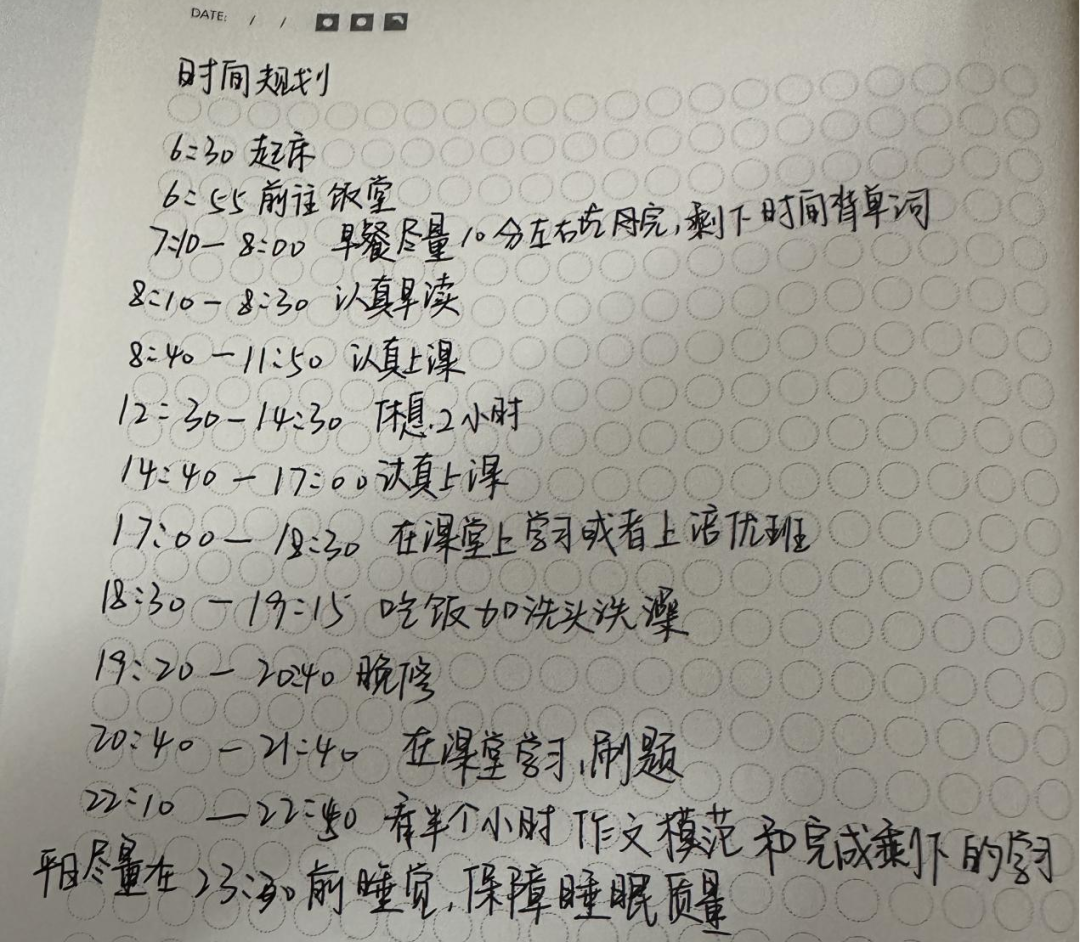 DATE: / /
时间规划
6:30 起床
6:55 前往饭堂
7:10-8:00 早餐尽量10分左右吃完,剩下时间背单词
8:10-8:30 认真早读
8:40-11:50 认真上课
12:30-14:30 休息.2小时
14:40-17:00 认真上课
17:00-18:30 在课堂上学习或者上培优班
18:30-19:15 吃饭加洗头洗澡
19:20-20:40 晚修
20:40-21:40 在课堂学习,刷题
22:10-22:40 看半个小时作文模范和完成剩下的学习
平日尽量在23:30前睡觉,保障睡眠质量